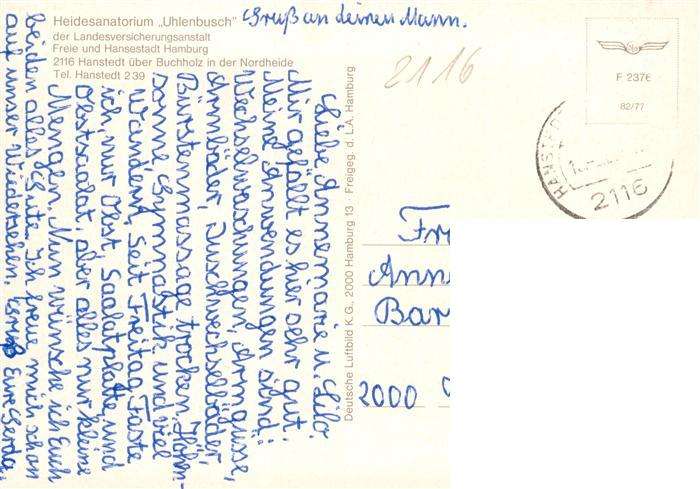 Heidesanatorium „Uhlenbusch"
der Landesversicherungsanstalt
Freie und Hansestadt Hamburg
2116 Hanstedt über Buchholz in der Nordheide
Tel. Hanstedt 2 39
Gruß an deinen Mann.
2116
F 2376
82/77
HANSTE
2116
Liebe Annemarie u. Lilo.
Mir gefällt es hier sehr gut.
Meine Anwendungen sind:
Wechselwaschungen, Armgüsse,
Armbäder, Duschwechselbäder,
Bürstenmassage trocken. Höhn-
sonne, Gymnastik und viel
Wandern. Seit Freitag Faste
ich, nur Obst, Saalatplatte, und
Obstsaalat, aber alles nur kleine
Mengen. Nun wünsche ich Euch
beiden alles Gute. Ich freue mich schon
auf unser Wiedersehen. Gruß Eure Gerda.
Deutsche Luftbild K.G., 2000 Hamburg 13 · Freigeg. d. L.A. Hamburg
Fr
Ann
Bar
2000